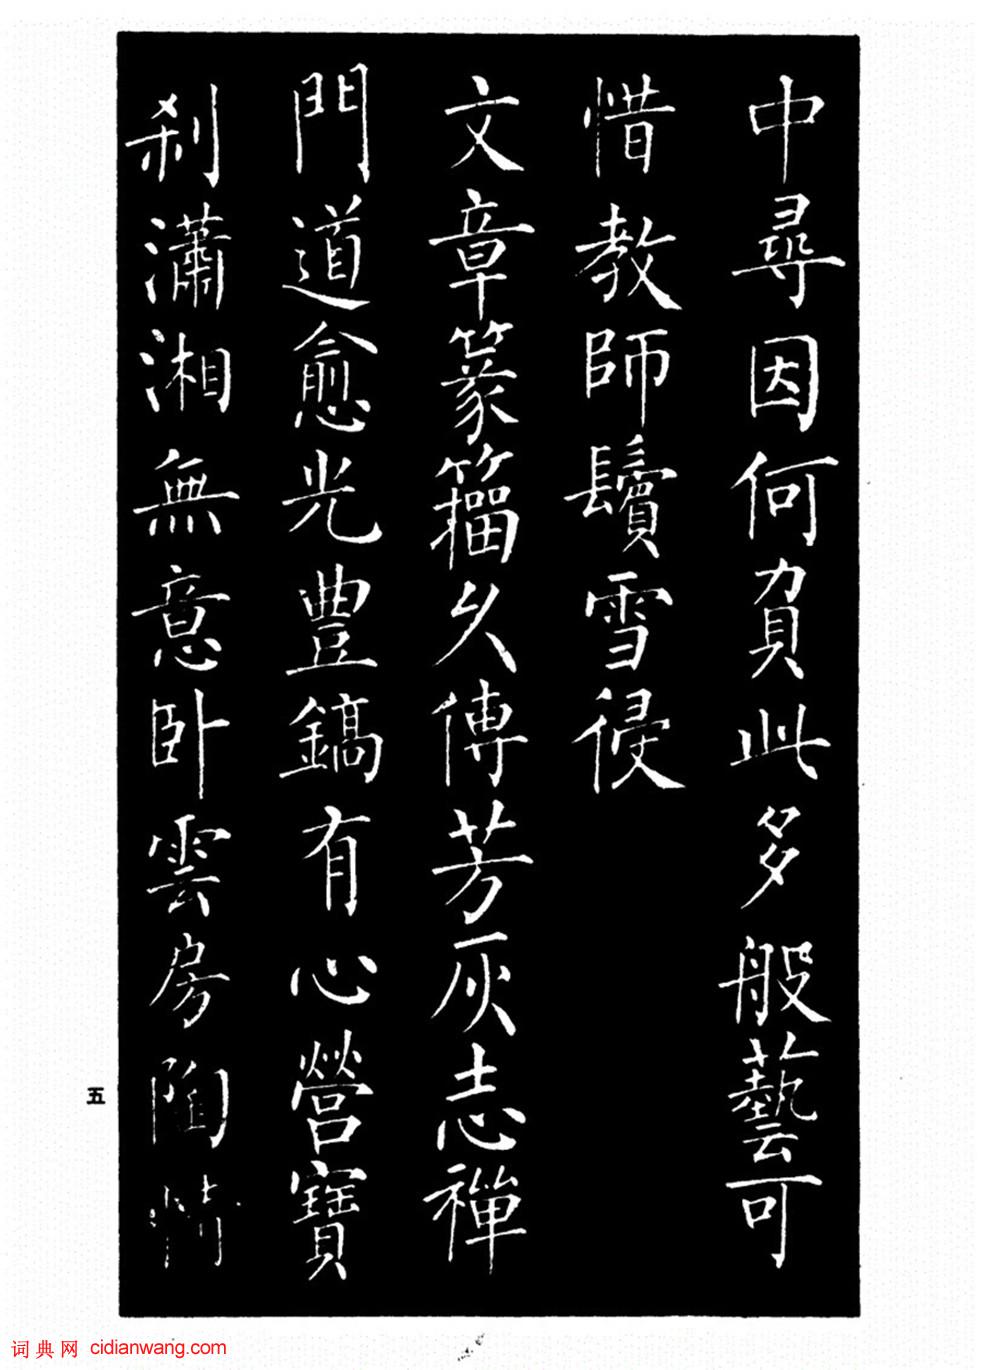 中尋因何負此多般藝可
惜教師鬢雪侵
文章篆籀久傳芳灰志禪
門道愈光豐鎬有心營寶
刹瀟湘無意臥雲房陶情
五
词典网 cidianwang.com